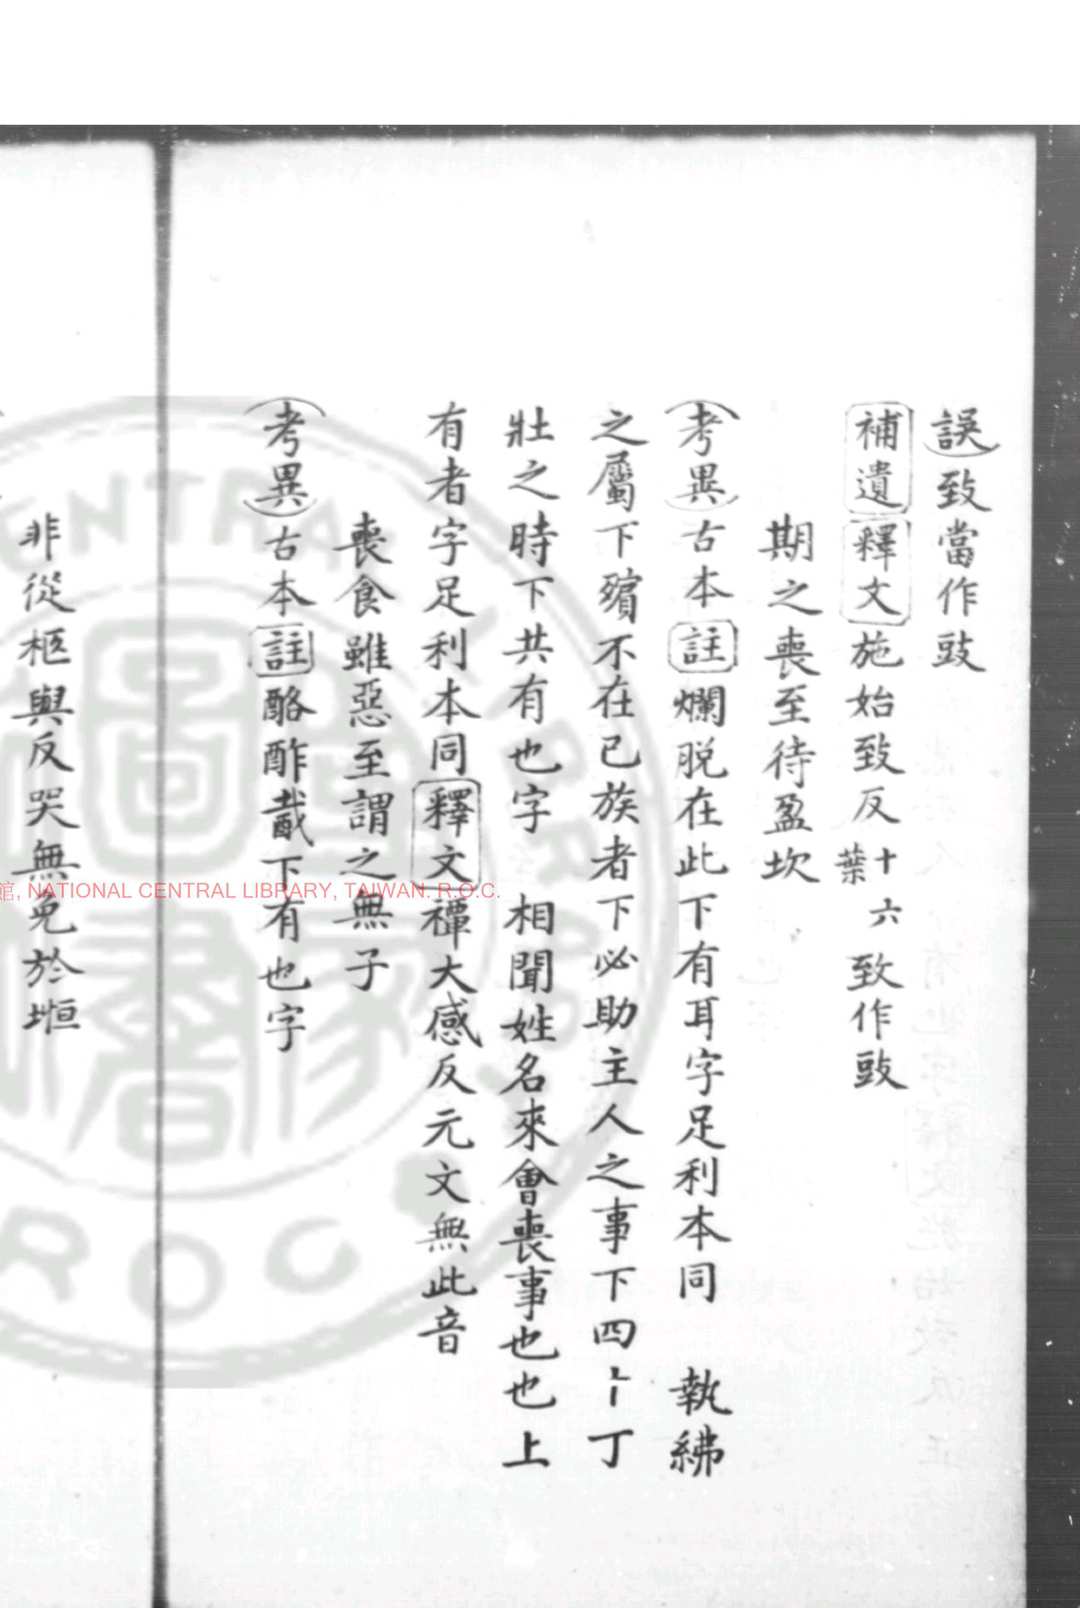 誤致當作豉
補遺釋文施始致反十六葉致作豉
期之喪至待盈坎
考異古本註爛脫在此下有耳字足利本同 執紼
之屬下殯不在已族者下必助主人之事下四十丁
壯之時下共有也字 相聞姓名來會喪事也也上
有者字足利本同釋文禫大感反元文無此音
喪食雖惡至謂之無子
考異古本註酪酢酨下有也字
非從柩與反哭無免於堩
館, NATIONAL CENTRAL LIBRARY, TAIWAN. R.O.C.